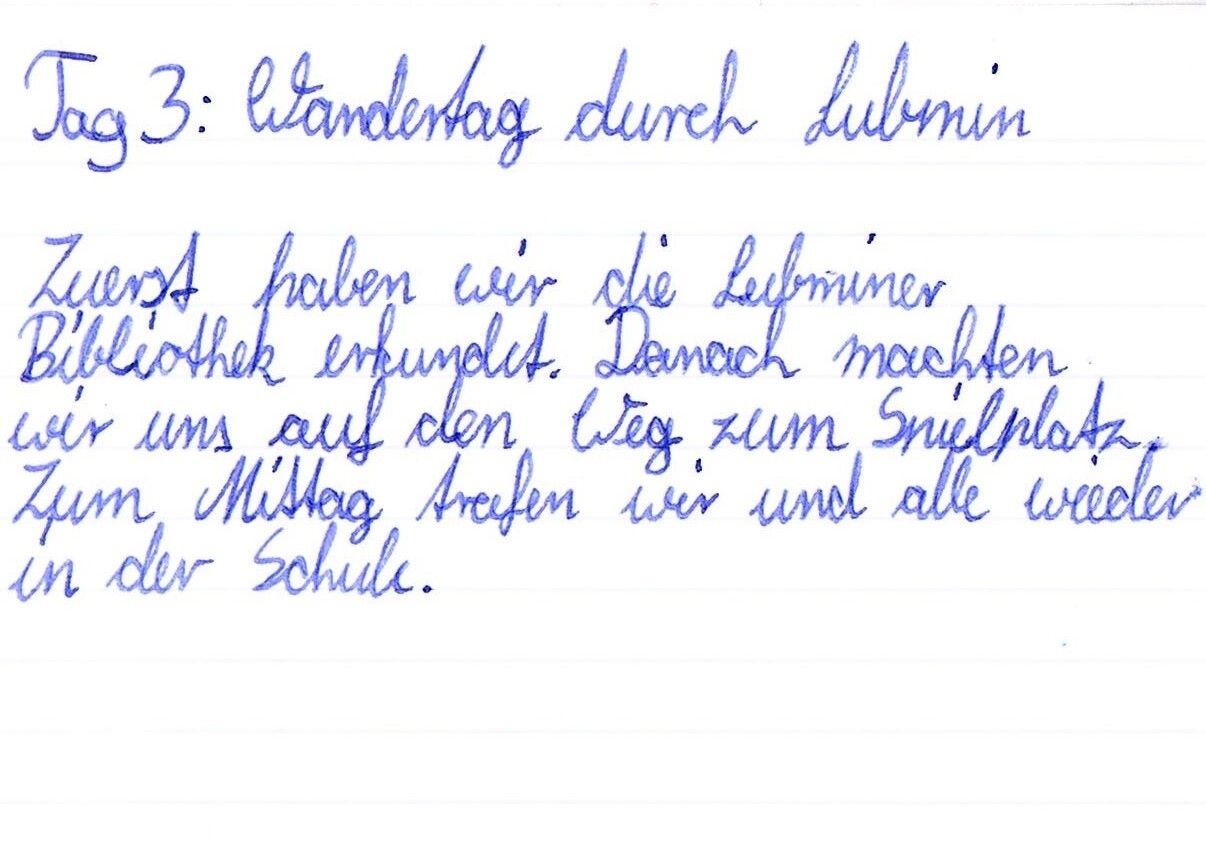 Tag 3: Wandertag durch Lubmin
Zuerst haben wir die Lubminer
Bibliothek erkundet. Danach machten
wir uns auf den Weg zum Spielplatz.
Zum Mittag trafen wir und alle wieder
in der Schule.